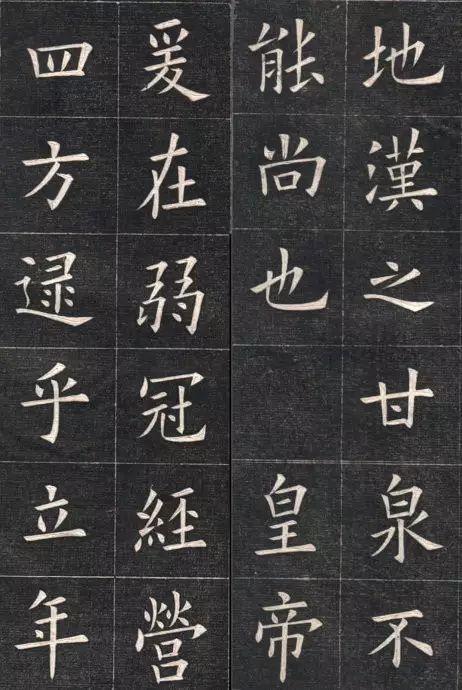 地漢之甘泉不
能尚也 皇帝
爰在弱冠經營
四方逯乎立年